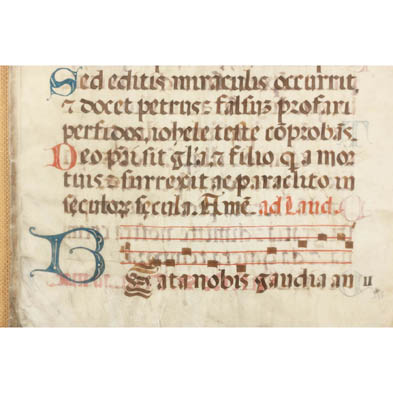 Sed editis miraculis occurrit,
⁊ docet petrus: falsuȝ profari
perfidos, iohele teste cõprobãs.
Deo pr̃i sit gl̃ia. ⁊ filio. q̃ a mor
tuis surrexit ac paraclito in
seculoꝝ sęcula. Amẽ. ad Laud.
Beata nobis gaudia an u